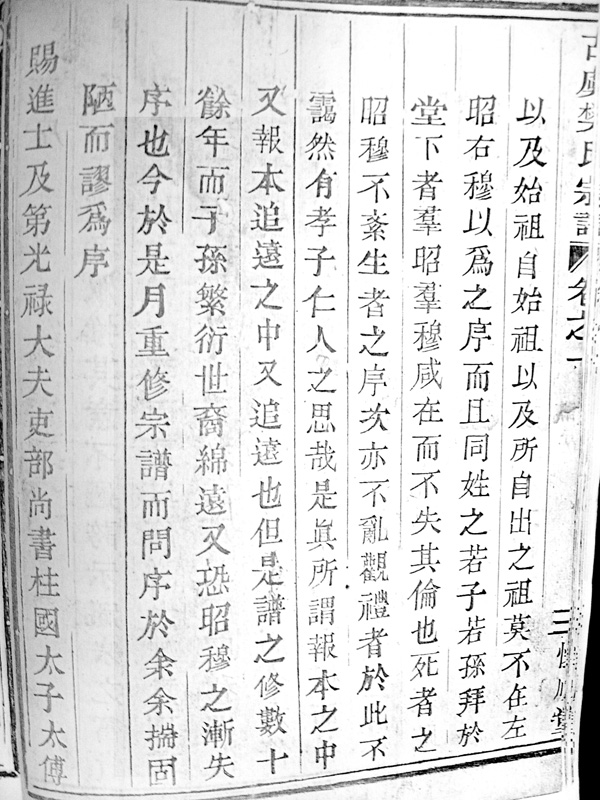 古虞樊氏宗譜 卷之一
三
以及始祖自始祖以及所自出之祖莫不在左
昭右穆以爲之序而且同姓之若子若孫拜於
堂下者羣昭羣穆咸在而不失其倫也死者之
昭穆不紊生者之序次亦不亂觀禮者於此不
靄然有孝子仁人之思哉是眞所謂報本之中
又報本追遠之中又追遠也但是譜之修數十
餘年而子孫繁衍世裔綿遠又恐昭穆之漸失
序也今於是月重修宗譜而問序於余余揣固
陋而謬爲序
賜進士及第光禄大夫吏部尚書柱國太子太傅